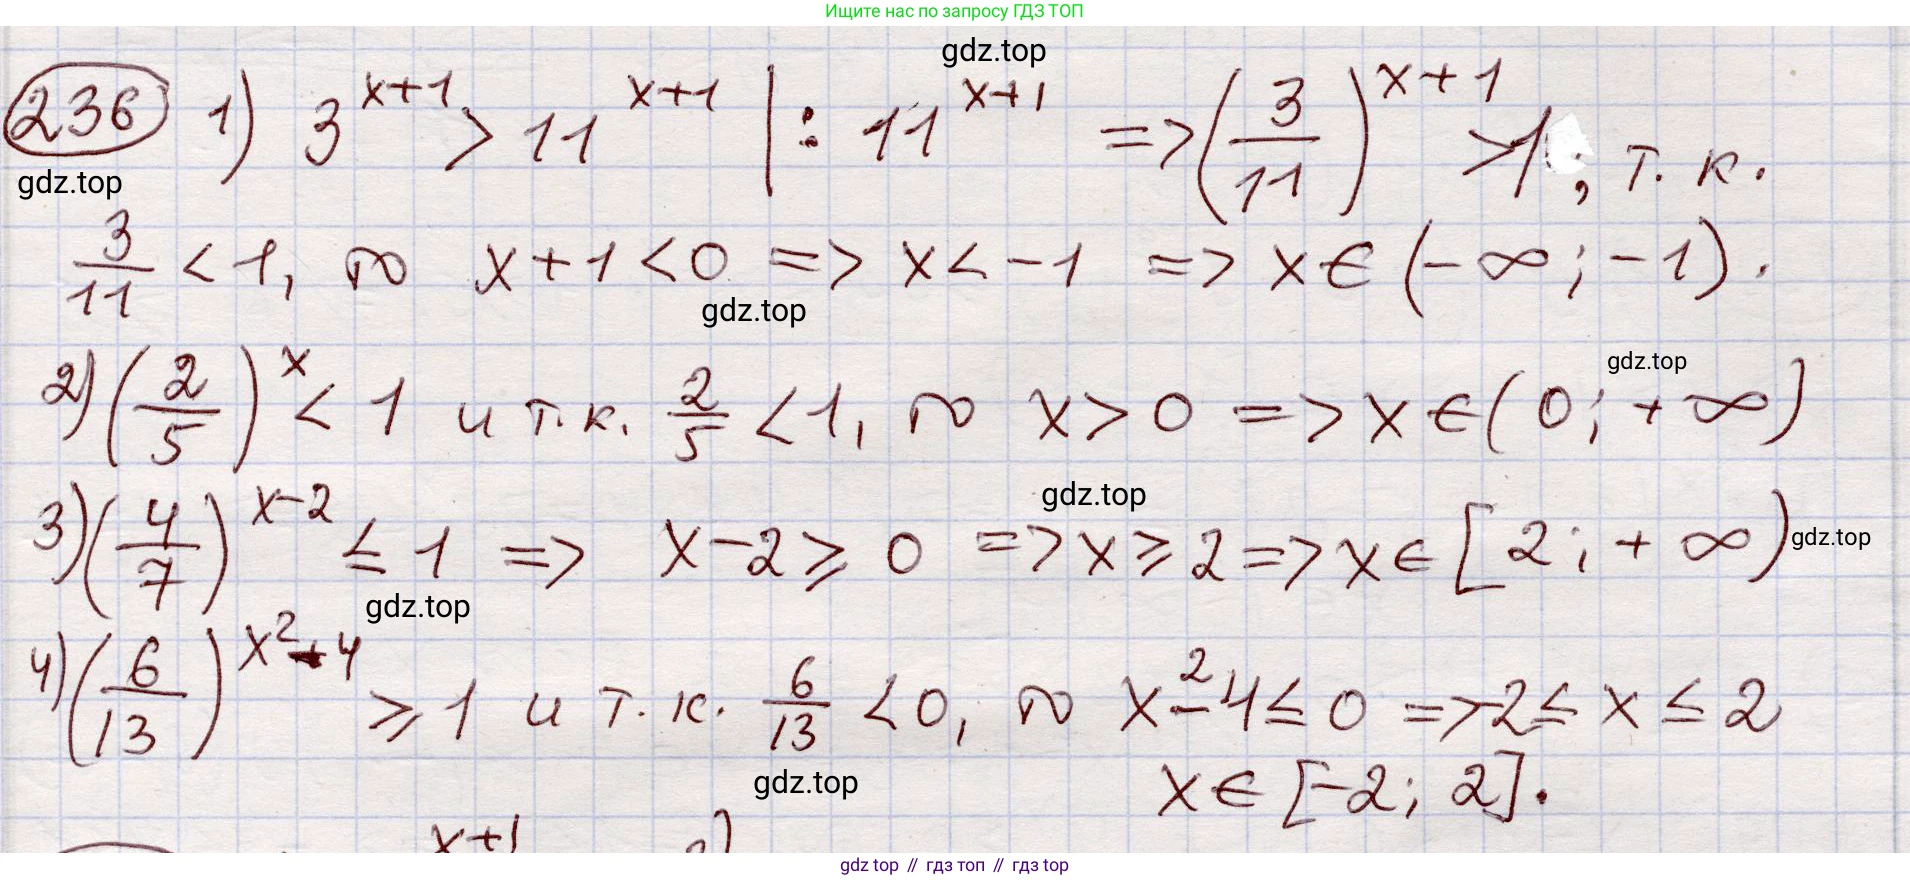 Ищите нас по запросу ГДЗ ТОП
gdz.top
236 1) 3^(x+1) > 11^(x+1) | : 11^(x+1) => (3/11)^(x+1) > 1, т. к.
gdz.top
3/11 < 1, то x + 1 < 0 => x < -1 => x ∈ (-∞; -1).
gdz.top
2) (2/5)^x < 1 и т.к. 2/5 < 1, то x > 0 => x ∈ (0; +∞)
gdz.top
3) (4/7)^(x-2) ≤ 1 => x - 2 ≥ 0 => x ≥ 2 => x ∈ [2; +∞)
gdz.top
gdz.top
gdz.top
4) (6/13)^(x²-4) ≥ 1 и т. к. 6/13 < 0, то x² - 4 ≤ 0 => -2 ≤ x ≤ 2
gdz.top
x ∈ [-2; 2].
x+1
gdz top // гдз топ // гдз top